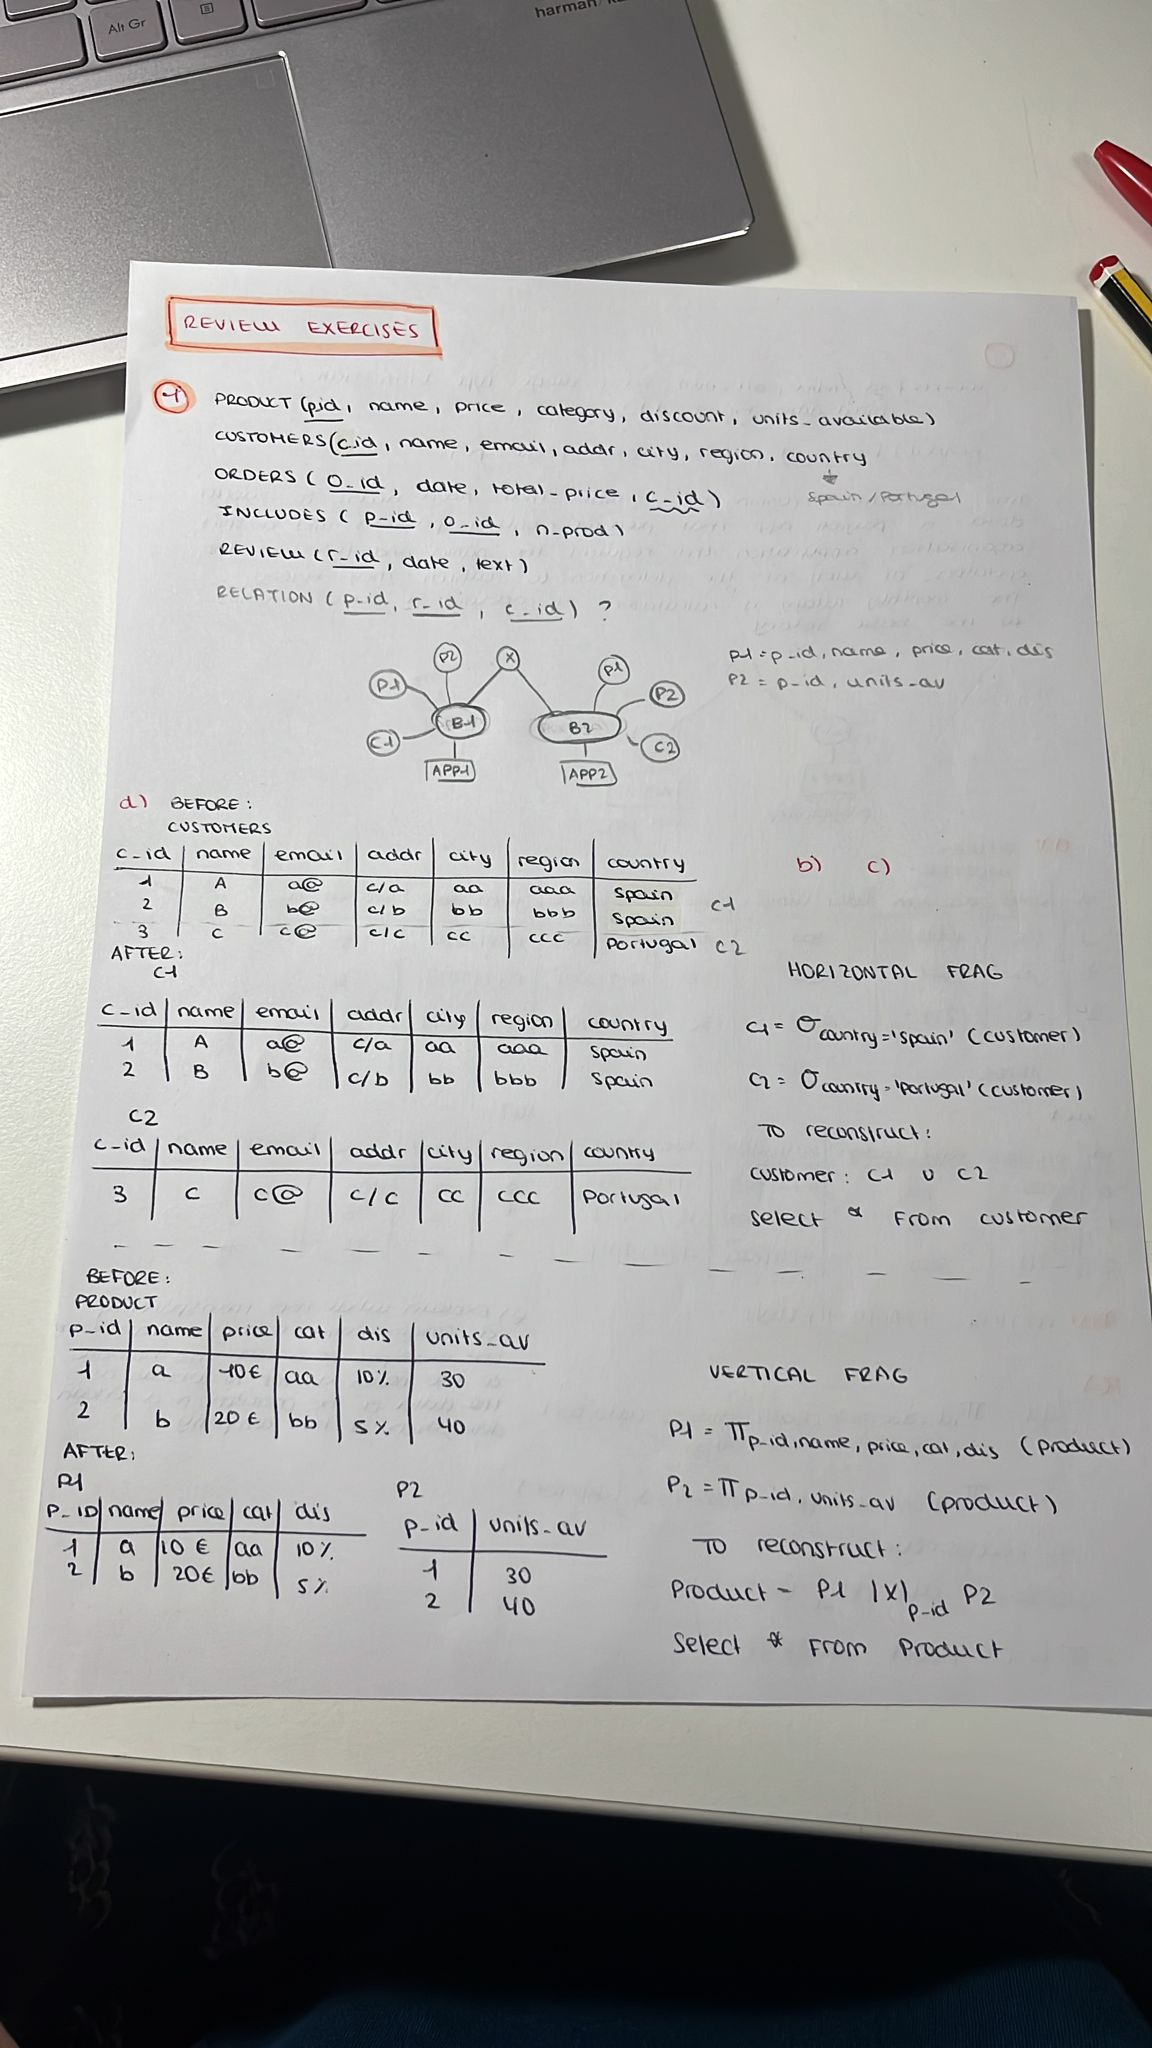 Alt Gr
harman/k
REVIEW EXERCISES
1 PRODUCT (pid, name, price, category, discount, units_available)
CUSTOMERS (c.id, name, email, addr, city, region, country
Spain/Portugal
ORDERS (o_id, date, total-price, c_id)
INCLUDES (p-id, o_id, n-prod)
REVIEW (r_id, date, text)
RELATION (p-id, r_id, c_id) ?
P2 X P1
P1 P2
B1 B2
C1 C2
APP1 APP2
P1 = p_id, name, price, cat, dis
P2 = p-id, units-av
d) BEFORE:
CUSTOMERS
c_id name email addr city region country
1 A a@ c/a aa aaa Spain
2 B b@ c/b bb bbb Spain C1
3 C c@ c/c cc ccc Portugal C2
b) c)
AFTER:
C1
c_id name email addr city region country
1 A a@ c/a aa aaa Spain
2 B b@ c/b bb bbb Spain
C2
c-id name email addr city region country
3 C c@ c/c cc ccc Portugal
HORIZONTAL FRAG
C1 = σ country='Spain' (customer)
C2 = σ country='Portugal' (customer)
To reconstruct:
customer: C1 ∪ C2
select * From customer
BEFORE:
PRODUCT
p-id name price cat dis units_av
1 a 10€ aa 10% 30
2 b 20€ bb 5% 40
AFTER:
P1
P_ID name price cat dis
1 a 10€ aa 10%
2 b 20€ bb 5%
P2
p-id units-av
1 30
2 40
VERTICAL FRAG
P1 = π p-id, name, price, cat, dis (product)
P2 = π p-id, units-av (product)
To reconstruct:
Product - P1 |X| p-id P2
Select * From Product